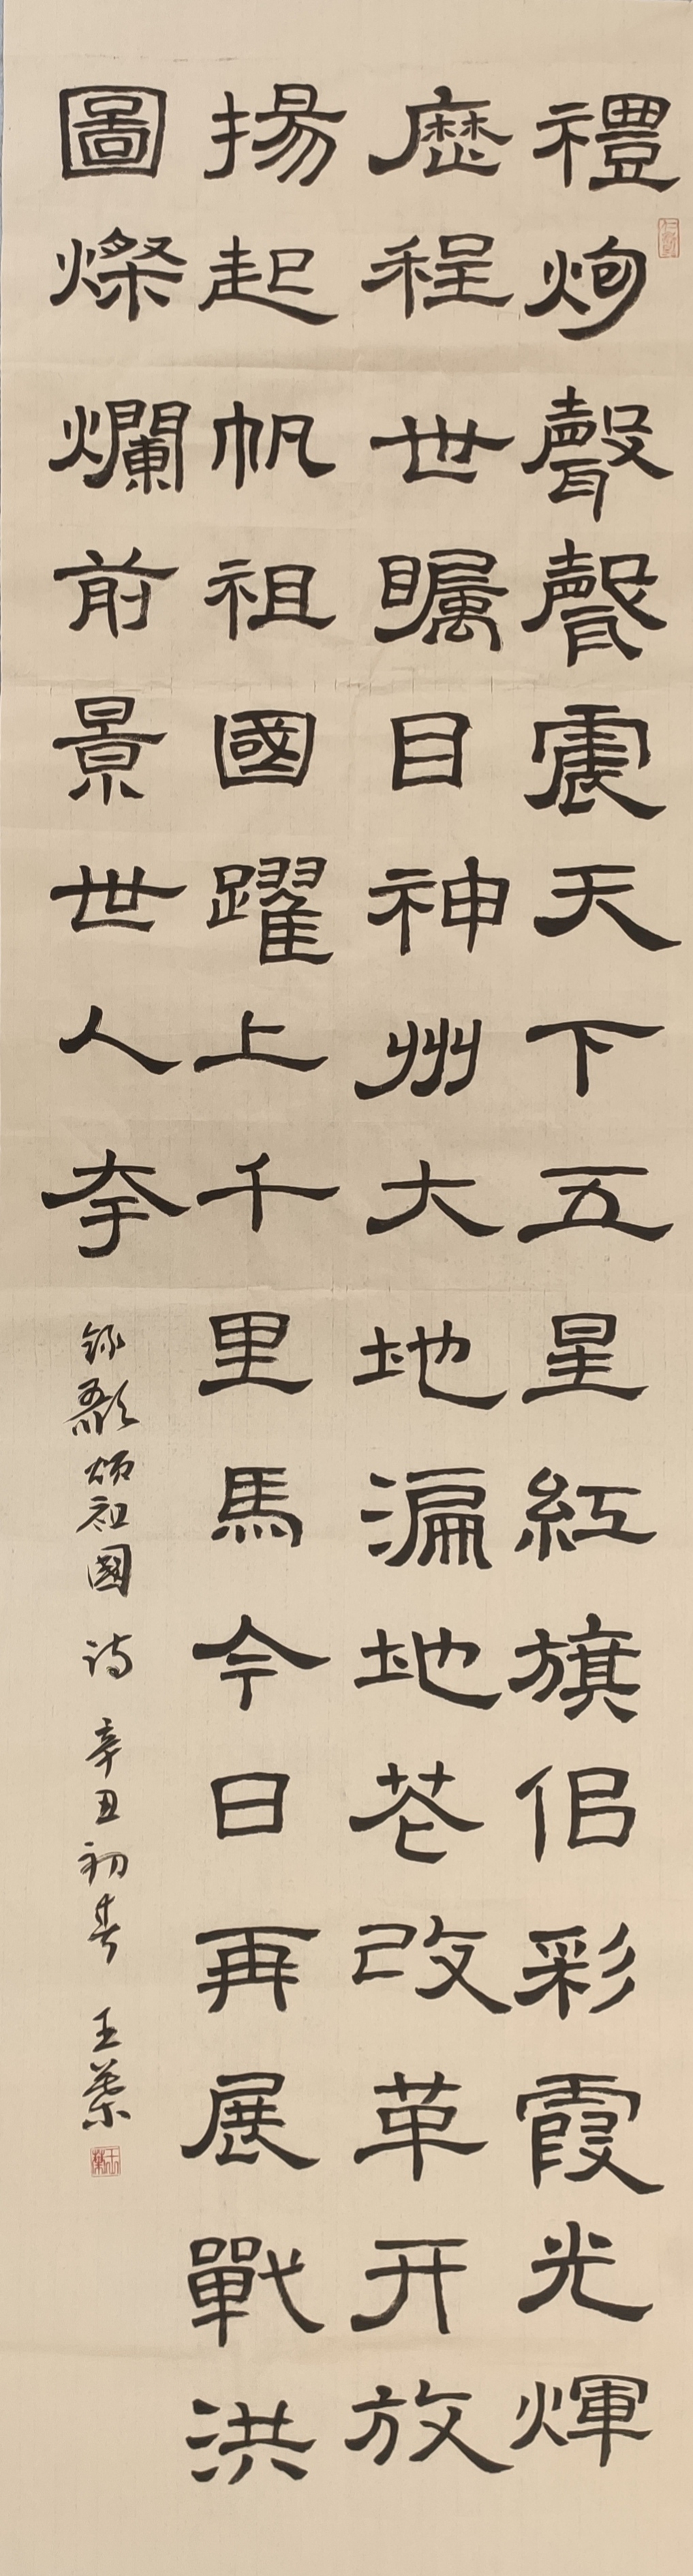 禮炮聲聲震天下五星紅旗佀彩霞光輝
歷程世瞩目神州大地遍地花改革开放
揚起帆祖國躍上千里馬今日再展戰洪
圖燦爛前景世人夸
錄歌頌祖國 詩 辛丑初春 王葉